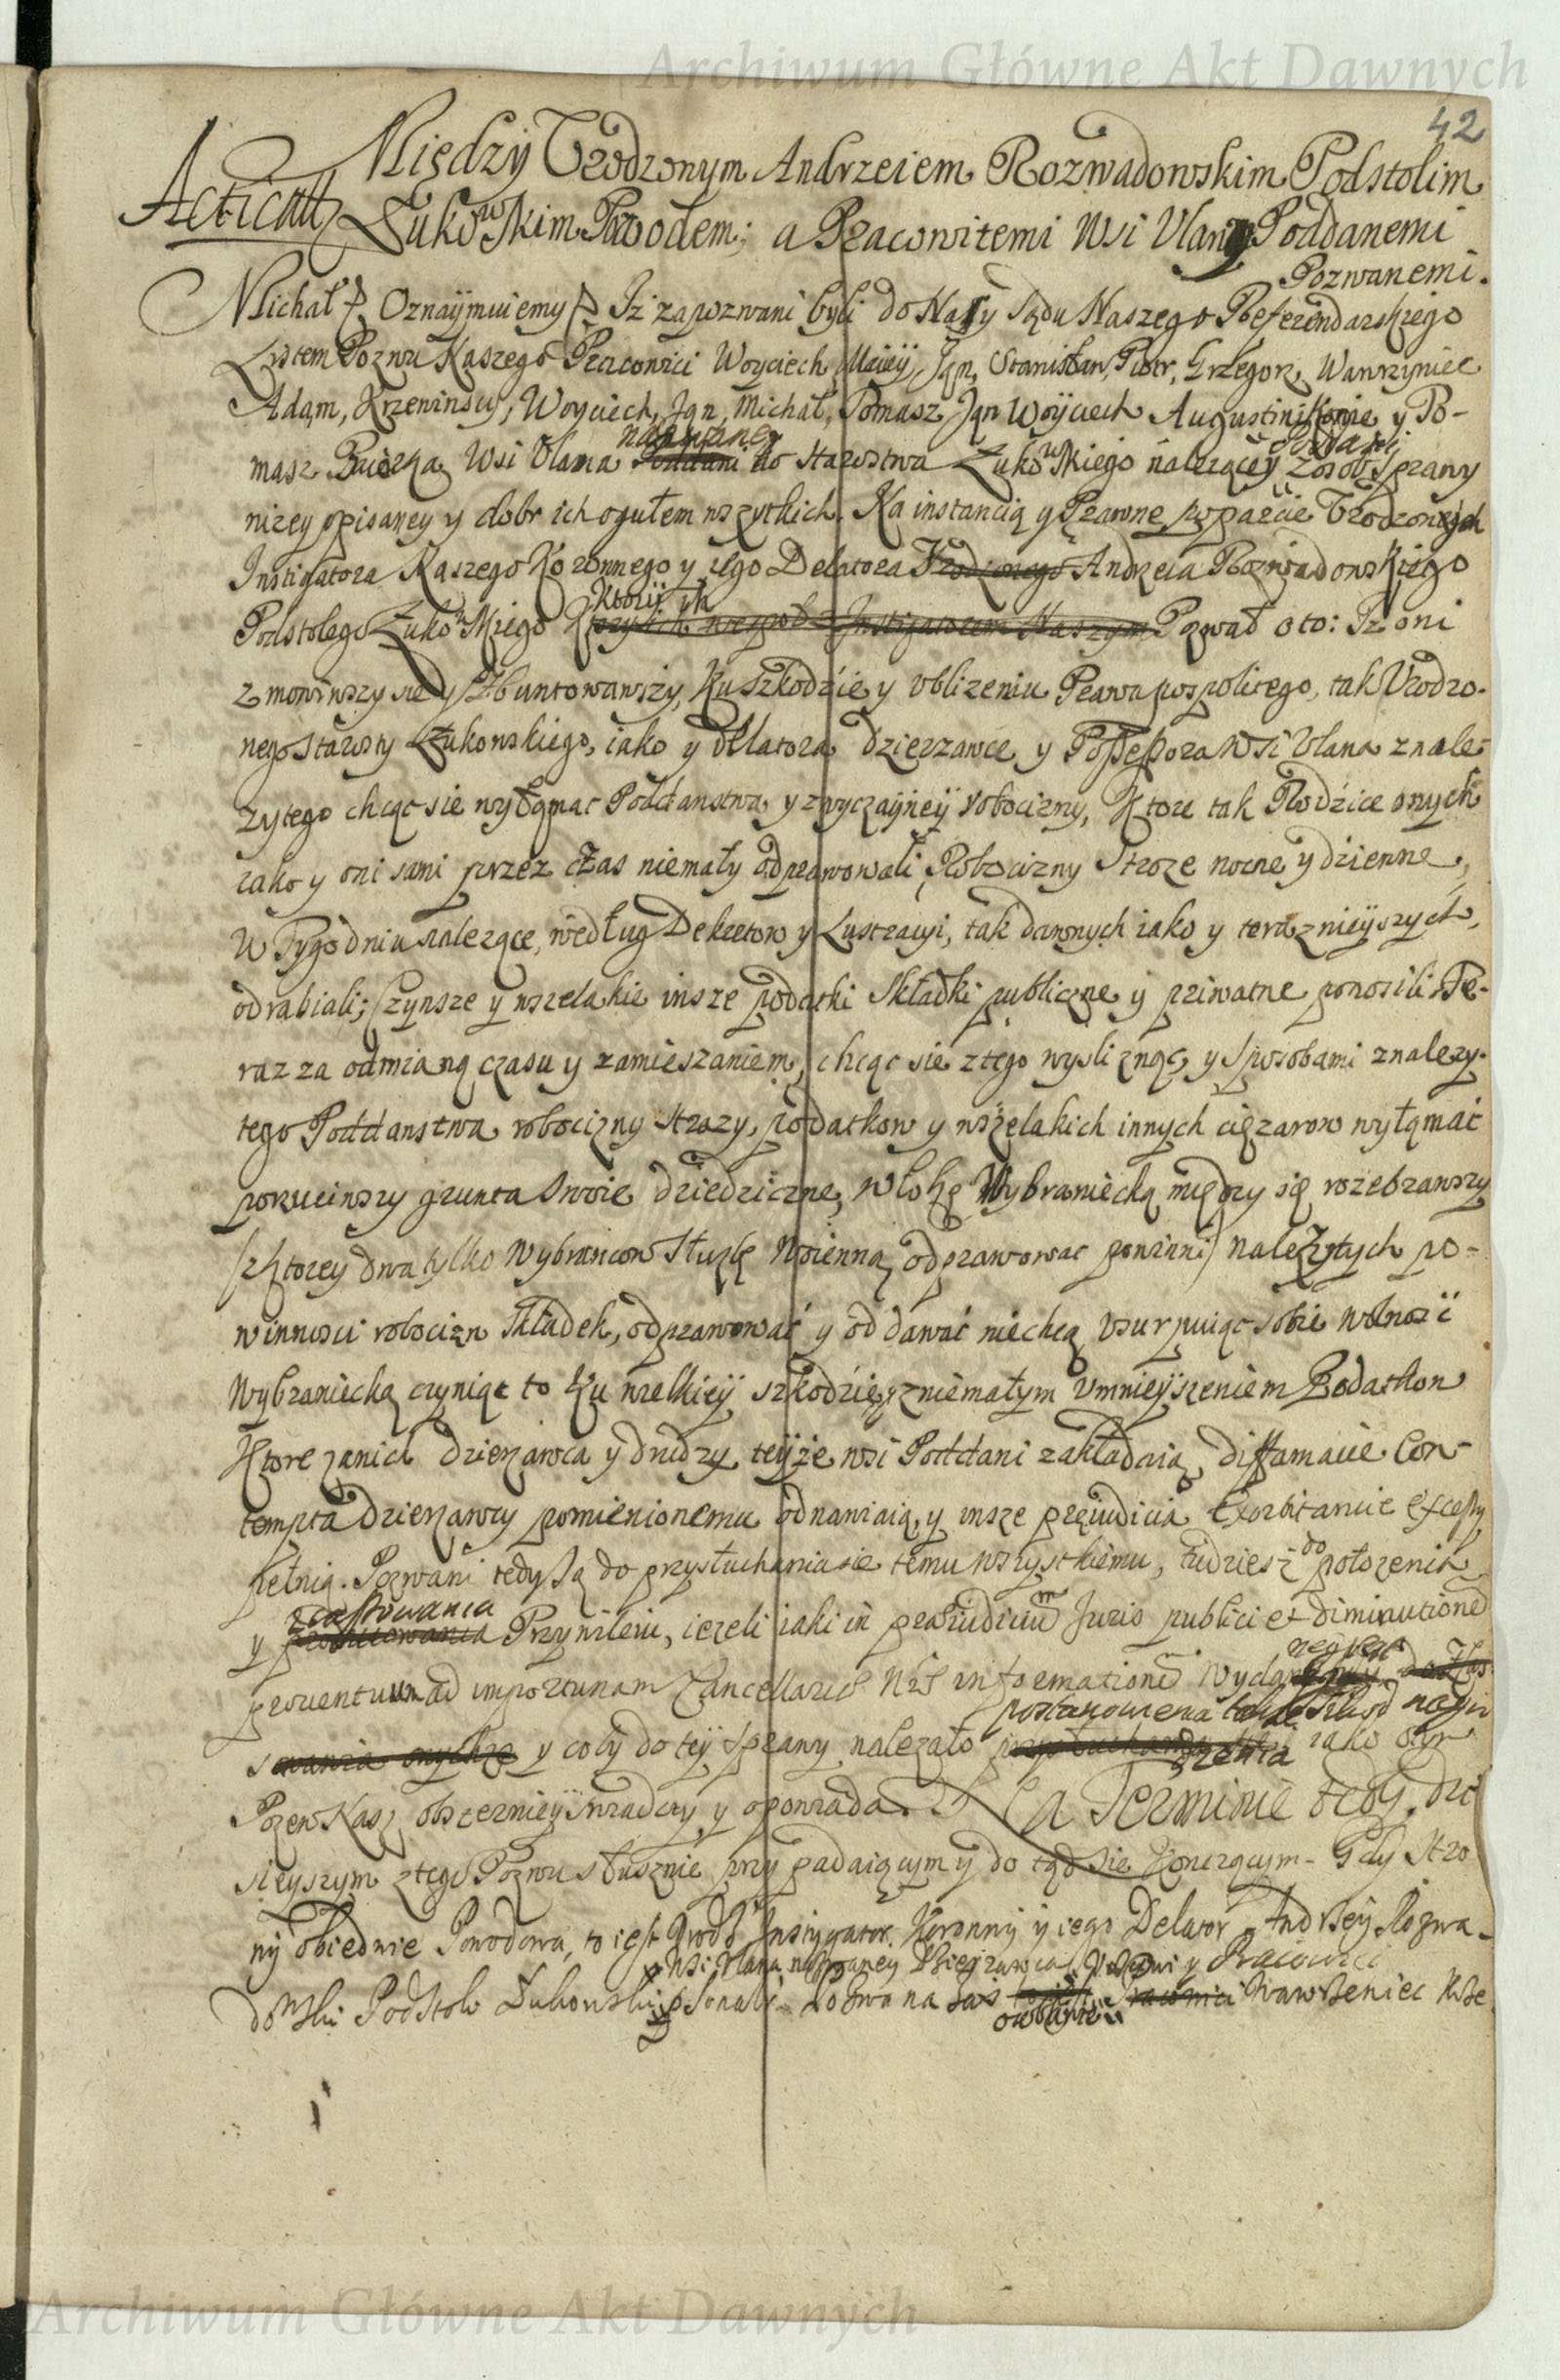 Archiwum Główne Akt Dawnych
42
Między Urodzonym Andrzeiem Rozwadowskim Podstolim
Acticatt
Łukowskim Powodem; a Pracowitemi Wsi Vlany Poddanemi
Pozwanemi.
Michał Oznaÿmuiemy Iż zapozwani byli do Nas y Sądu Naszego Referendarskiego
Listem Pozwu Naszego Pracowici Woyciech, Maciey, Jan, Stanisław, Piotr, Grzegorz, Wawrzyniec
Adam, Krzewinscy, Woyciech, Jan, Michał, Tomasz, Jan Woyciech Augustin y To-
nazwaney poddani
masz Wsi Vlana Poddani do Starostwa Łukowskiego należącey z osob Sprawy
niżey opisaney y dobr ich ogułem wszytkich. Na instancią y Prawne poparcie Urodzonych
Instigatora Naszego Koronnego y iego Delatora Urodzonego Andrzeia Rozwadowskiego
Ktorÿ ich
Podstolego Łukowskiego Ktorzy ich wespoł z Instigatorem Naszym Pozwał o to: Iż oni
zmowiwszy sie y Zbuntowawszy, Ku Szkodzie y ubliżeniu Prawa pospolitego, tak Urodzo-
nego Starosty Łukowskiego, iako y delatora dzierzawce y Possessora Wsi Vlana znale-
zytego chcąc sie wyłąmac Poddanstwa y zwyczaÿneÿ robocizny, Ktore tak Rodzice onych
iako y oni sami przez czas niemały odprawowali, Robocizny Stroze nocne y dzienne,
W Tygodniu należące, według Dekretow y Lustracyi, tak dawnych iako y teraznieÿszych,
odrabiali; Czynsze y wszelakie insze podatki Składki publiczne y priwatne ponosili Te-
raz za odmianą czasu y zamieszaniem, chcąc sie z tego wysliznąc, y Sposobami znalezy-
tego Poddanstwa robocizny Strozy, podatkow y wszelakich innych ciężarow wyłąmać
porzuciwszy grunta Swoie dziedziczne, włokę Wybraniecką między się rozebrawszy
(z Ktorey dwa tylko Wybrancow Służbę Woienną odprawowac powinni) należytych po-
winnosci robocizn Składek, odprawować y oddawać niechcą Vsurpuiąc sobie wolność
Wybraniecką czyniąc to Ku wielkieÿ szkodzie, y z niemałym umnieÿszeniem Podatkow
Ktore zanich dzierzawca y drudzy teÿże wsi Poddani zakładaią, diffamacie Con-
tempta dzierzawcy pomienionemu odnawiaią, y insze preiudicia Exorbitancie excessy
pełnią. Pozwani tedy są do przysłuchania sie temu wszystkiemu, tudziesz do położenia
y Przywileiu, ieżeli iaki in praeiudicium Juris publici et diminutionem
proventuum ad importunam Cancellariae Nrae informationem
postanowienia
y coby do teÿ Sprawy należało iako
Pozew Nasz obszernieÿ Swiadczy y opowiada. Na Terminie tedy dzi
sieyszym z tego Pozwu słusznie przypadaiącym y do tąd sie toczącym. Gdy Stro
nÿ obiedwie Powodowa, to iest Urodz Instygator Koronnÿ y iego Delator Andrzeÿ Rozwa-
Wsi Vlana nazwaney Dzierzawca y Pracowici
dowski Podstoli Łukowski Pozwana zas Wawrzeniec Krze
osobiscie
Archiwum Główne Akt Dawnych